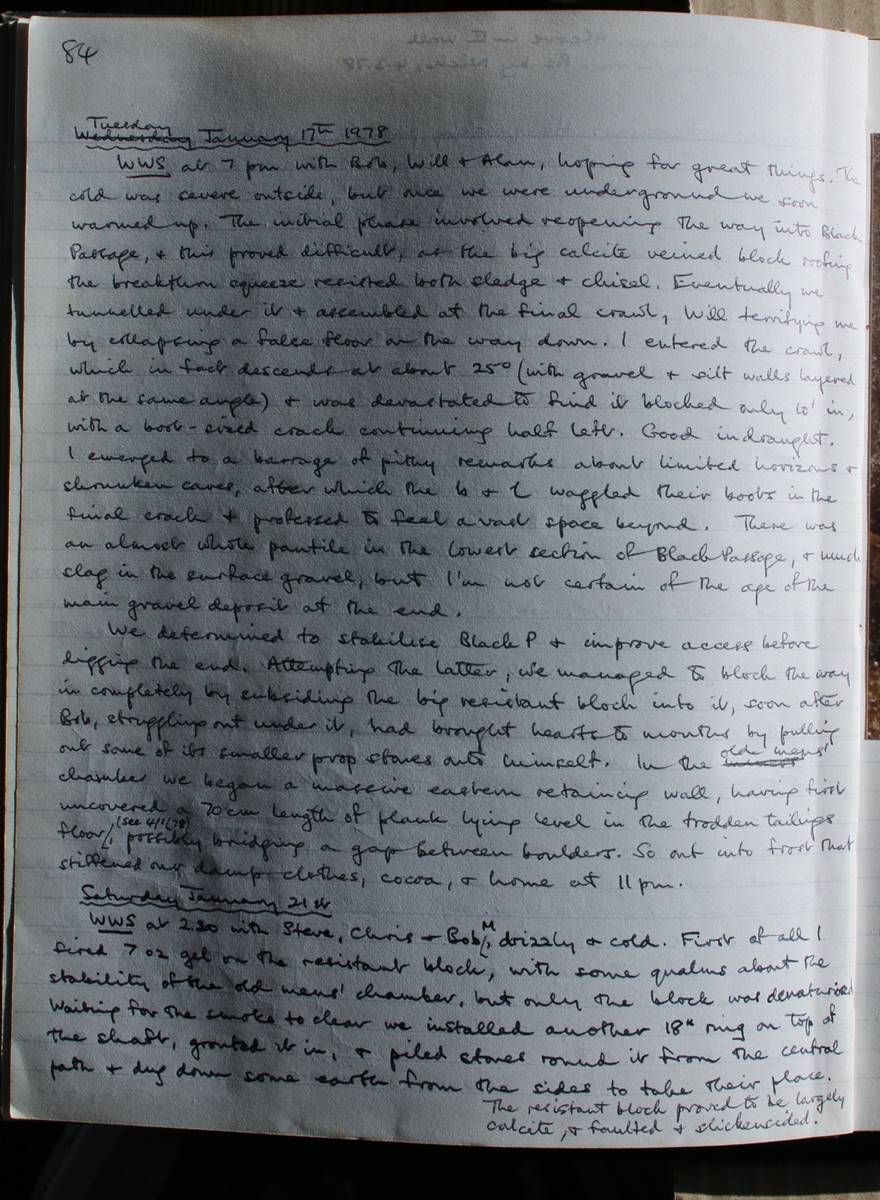 84
Tuesday
Wednesday January 17th 1978
WWS at 7 pm with Bob, Will & Alan, hoping for great things. The
cold was severe outside, but once we were underground we soon
warmed up. The initial phase involved reopening the way into Black
Passage, & this proved difficult, as the big calcite veined block roofing
the breakthru squeeze resisted both sledge & chisel. Eventually we
tunnelled under it & assembled at the final crawl, Will terrifying me
by collapsing a false floor on the way down. I entered the crawl,
which in fact descends at about 25° (with gravel & silt walls layered
at the same angle) & was devastated to find it blocked only 10' in,
with a boot-sized crack continuing half left. Good indraught.
I emerged to a barrage of pithy remarks about limited horizons &
shrunken caves, after which the b & l waggled their boots in the
final crack & professed to feel a vast space beyond. There was
an almost whole pantile in the lowest section of Black Passage, & much
slag in the surface gravel, but I'm not certain of the age of the
main gravel deposit at the end.
We determined to stabilise Black P & improve access before
digging the end. Attempting the latter, we managed to block the way
in completely by subsiding the big resistant block into it, soon after
Bob, struggling out under it, had brought hearts to mouths by pulling
out some of its smaller prop stones onto himself. In the olde mens'
chamber we began a massive eastern retaining wall, having first
uncovered a 70cm length of plank lying level in the trodden tailings
floor (see 4/1/78), possibly bridging a gap between boulders. So out into frost that
stiffened our damp clothes, cocoa, & home at 11pm.
Saturday January 21st
WWS at 2.30 with Steve, Chris & Bob M, drizzly & cold. First of all I
fired 7 oz gel on the resistant block, with some qualms about the
stability of the old mens' chamber, but only the block was denatured.
Waiting for the smoke to clear we installed another 18" ring on top of
the shaft, grouted it in, & piled stones round it from the central
path & dug down some earth from the sides to take their place.
The resistant block proved to be largely
calcite, & faulted & slickensided.